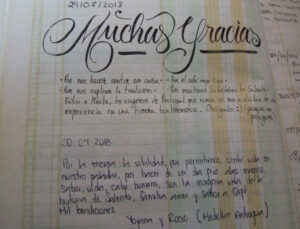 29/07/2018
Muchas Gracias
• Por nos hacer sentir en casa • Por el café
• Por nos explicar la tradición • Por mostrarnos la historia de Salento
Fabio e Marta, los viajeros de Portugal que nunca se van a olvidar de su
experiencia en una tierra tan hermosa. Obrigado :) (gracias en
portugués)
30-07-2018
Por la energia, la utilidad, por permitirnos sentir vida en
nuestro paladar, por hacer de un día frío algo mágico,
sabor, vida, calor humano, son la
historia de Salento, brindan amor y sabor a Café.
Mil bendiciones
y Rocio (Medellín Antioquia)